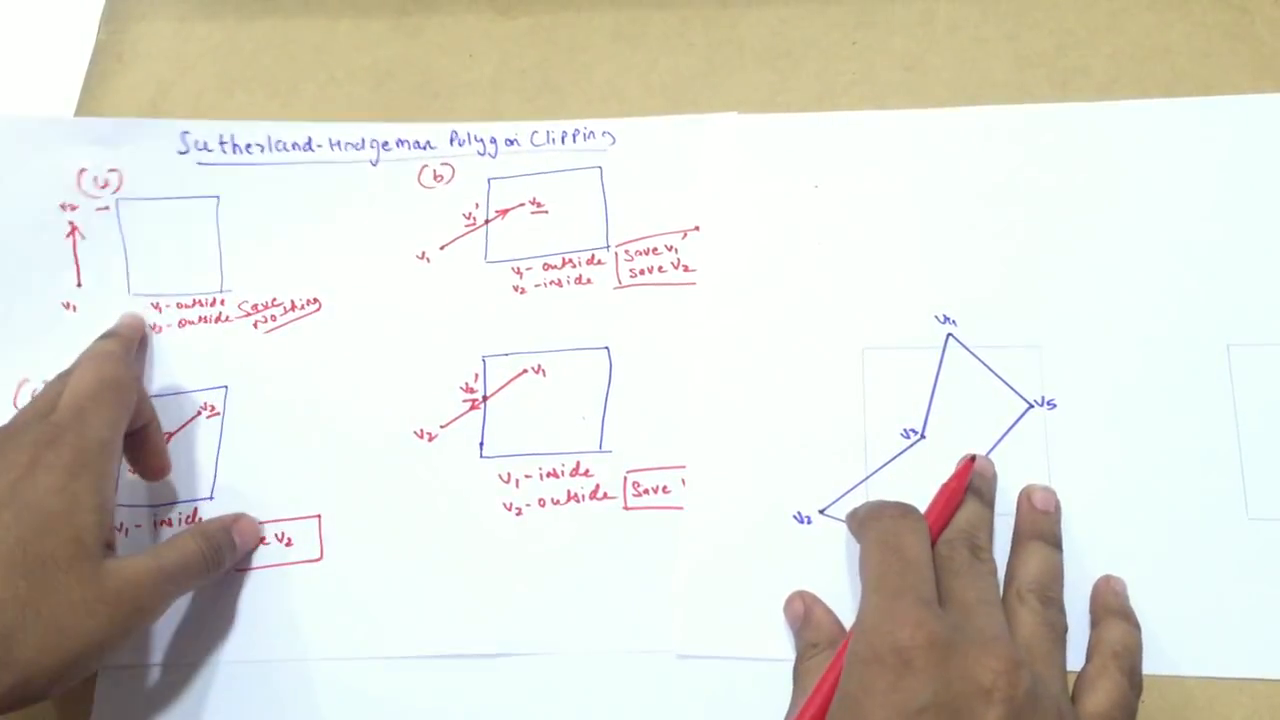 Sutherland-Hodgeman Polygon Clipping
(a)
v2
v1
v1-outside
v2-outside Save
Nothing
(b)
v1'
v2
v1
v1-outside
v2-inside
Save v1'
Save v2
v2
v1-inside
v2
v2'
v1
v2
v1-inside
v2-outside
Save '
v4
v5
v3
v2